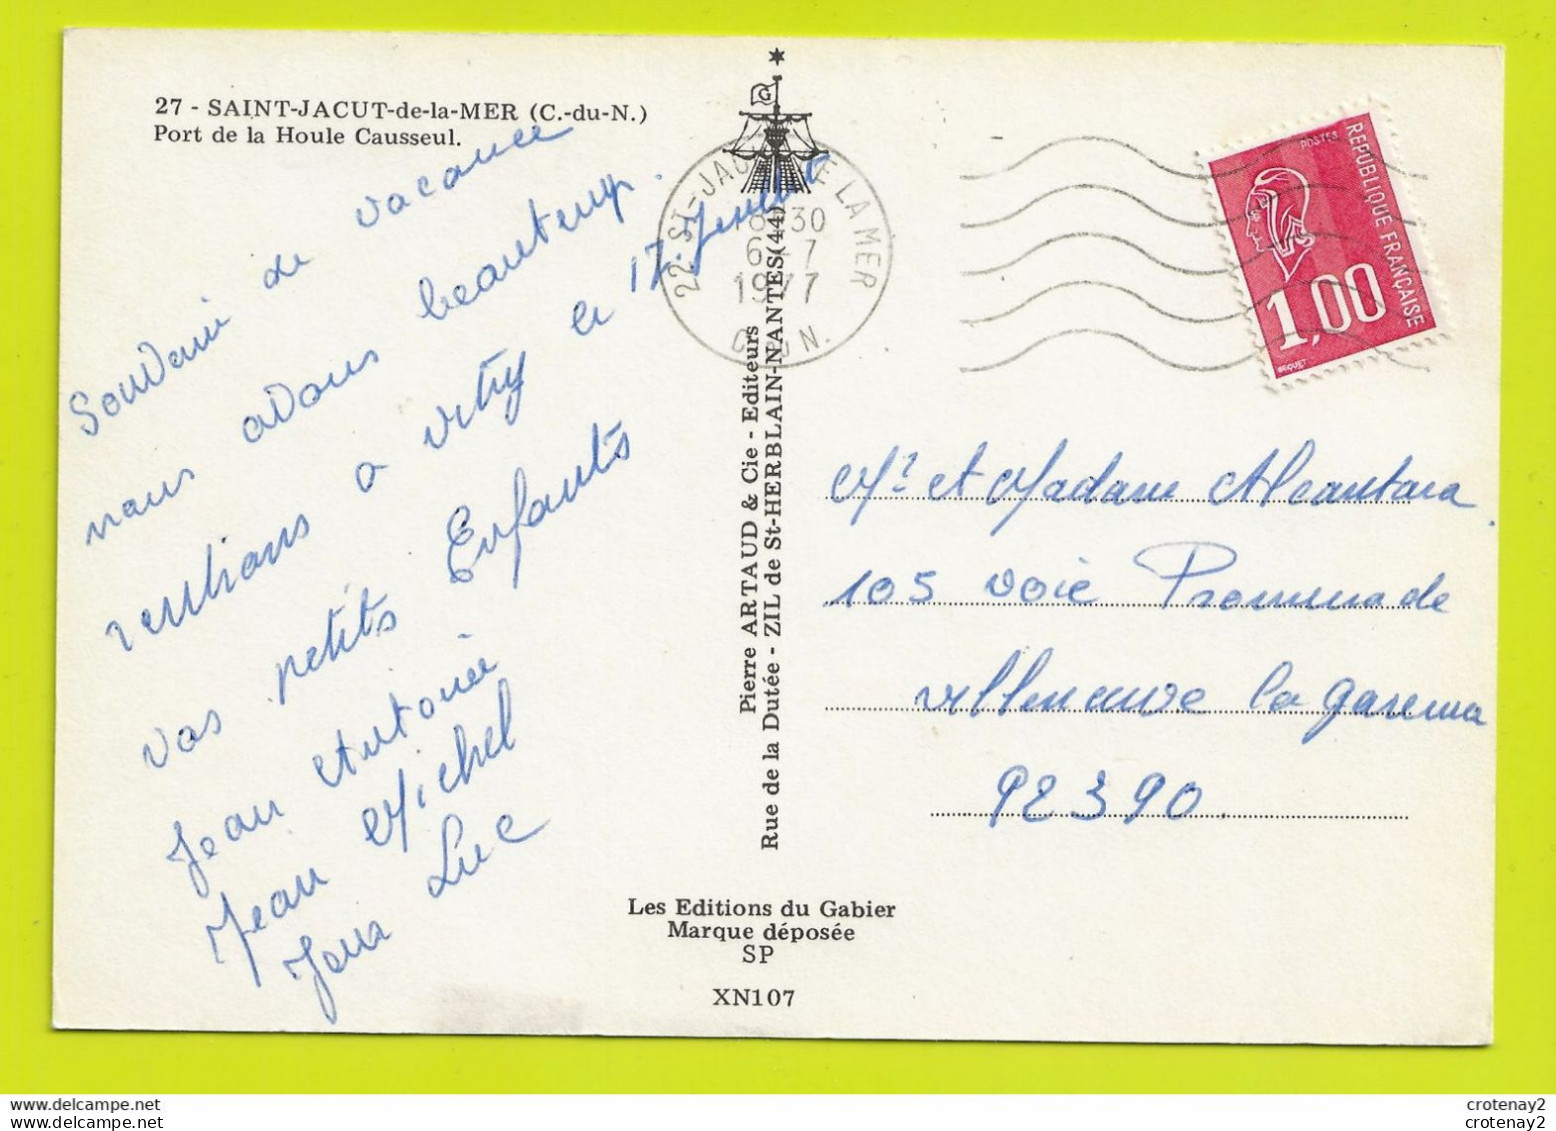 27 - SAINT-JACUT-de-la-MER (C.-du-N.)
Port de la Houle Causseul.
Souvenir de vacance
nous avons beautemp.
rentrans a vitry le 17. Juillet
vos petits Enfants
Jean Antoine
Jean Michel
Jean Luc
Pierre ARTAUD & Cie - Editeurs
Rue de la Dutée - ZIL de St-HERBLAIN-NANTES (44)
G
22 ST-JACUT DE LA MER
18 30
6 - 7
1977
C. DU N.
POSTES
REPUBLIQUE FRANÇAISE
1,00
BEQUET
Mr et Madame Alcantara
105 voie Promenade
Villeneuve la garenna
92390.
Les Editions du Gabier
Marque déposée
SP
XN107
crotenay2
crotenay2
crotenay2
crotenay2